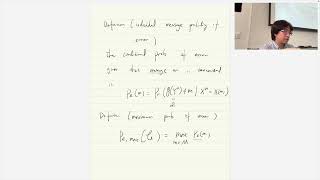 Definition (individual message probability of
error)
the conditional prob of error
given that message m is
P_e(m) = Pr(g(Y^n) ≠ m | X^n = x(m))
Define (maximum prob of error)
P_e,max(C) = max P_e(m)
m∈M